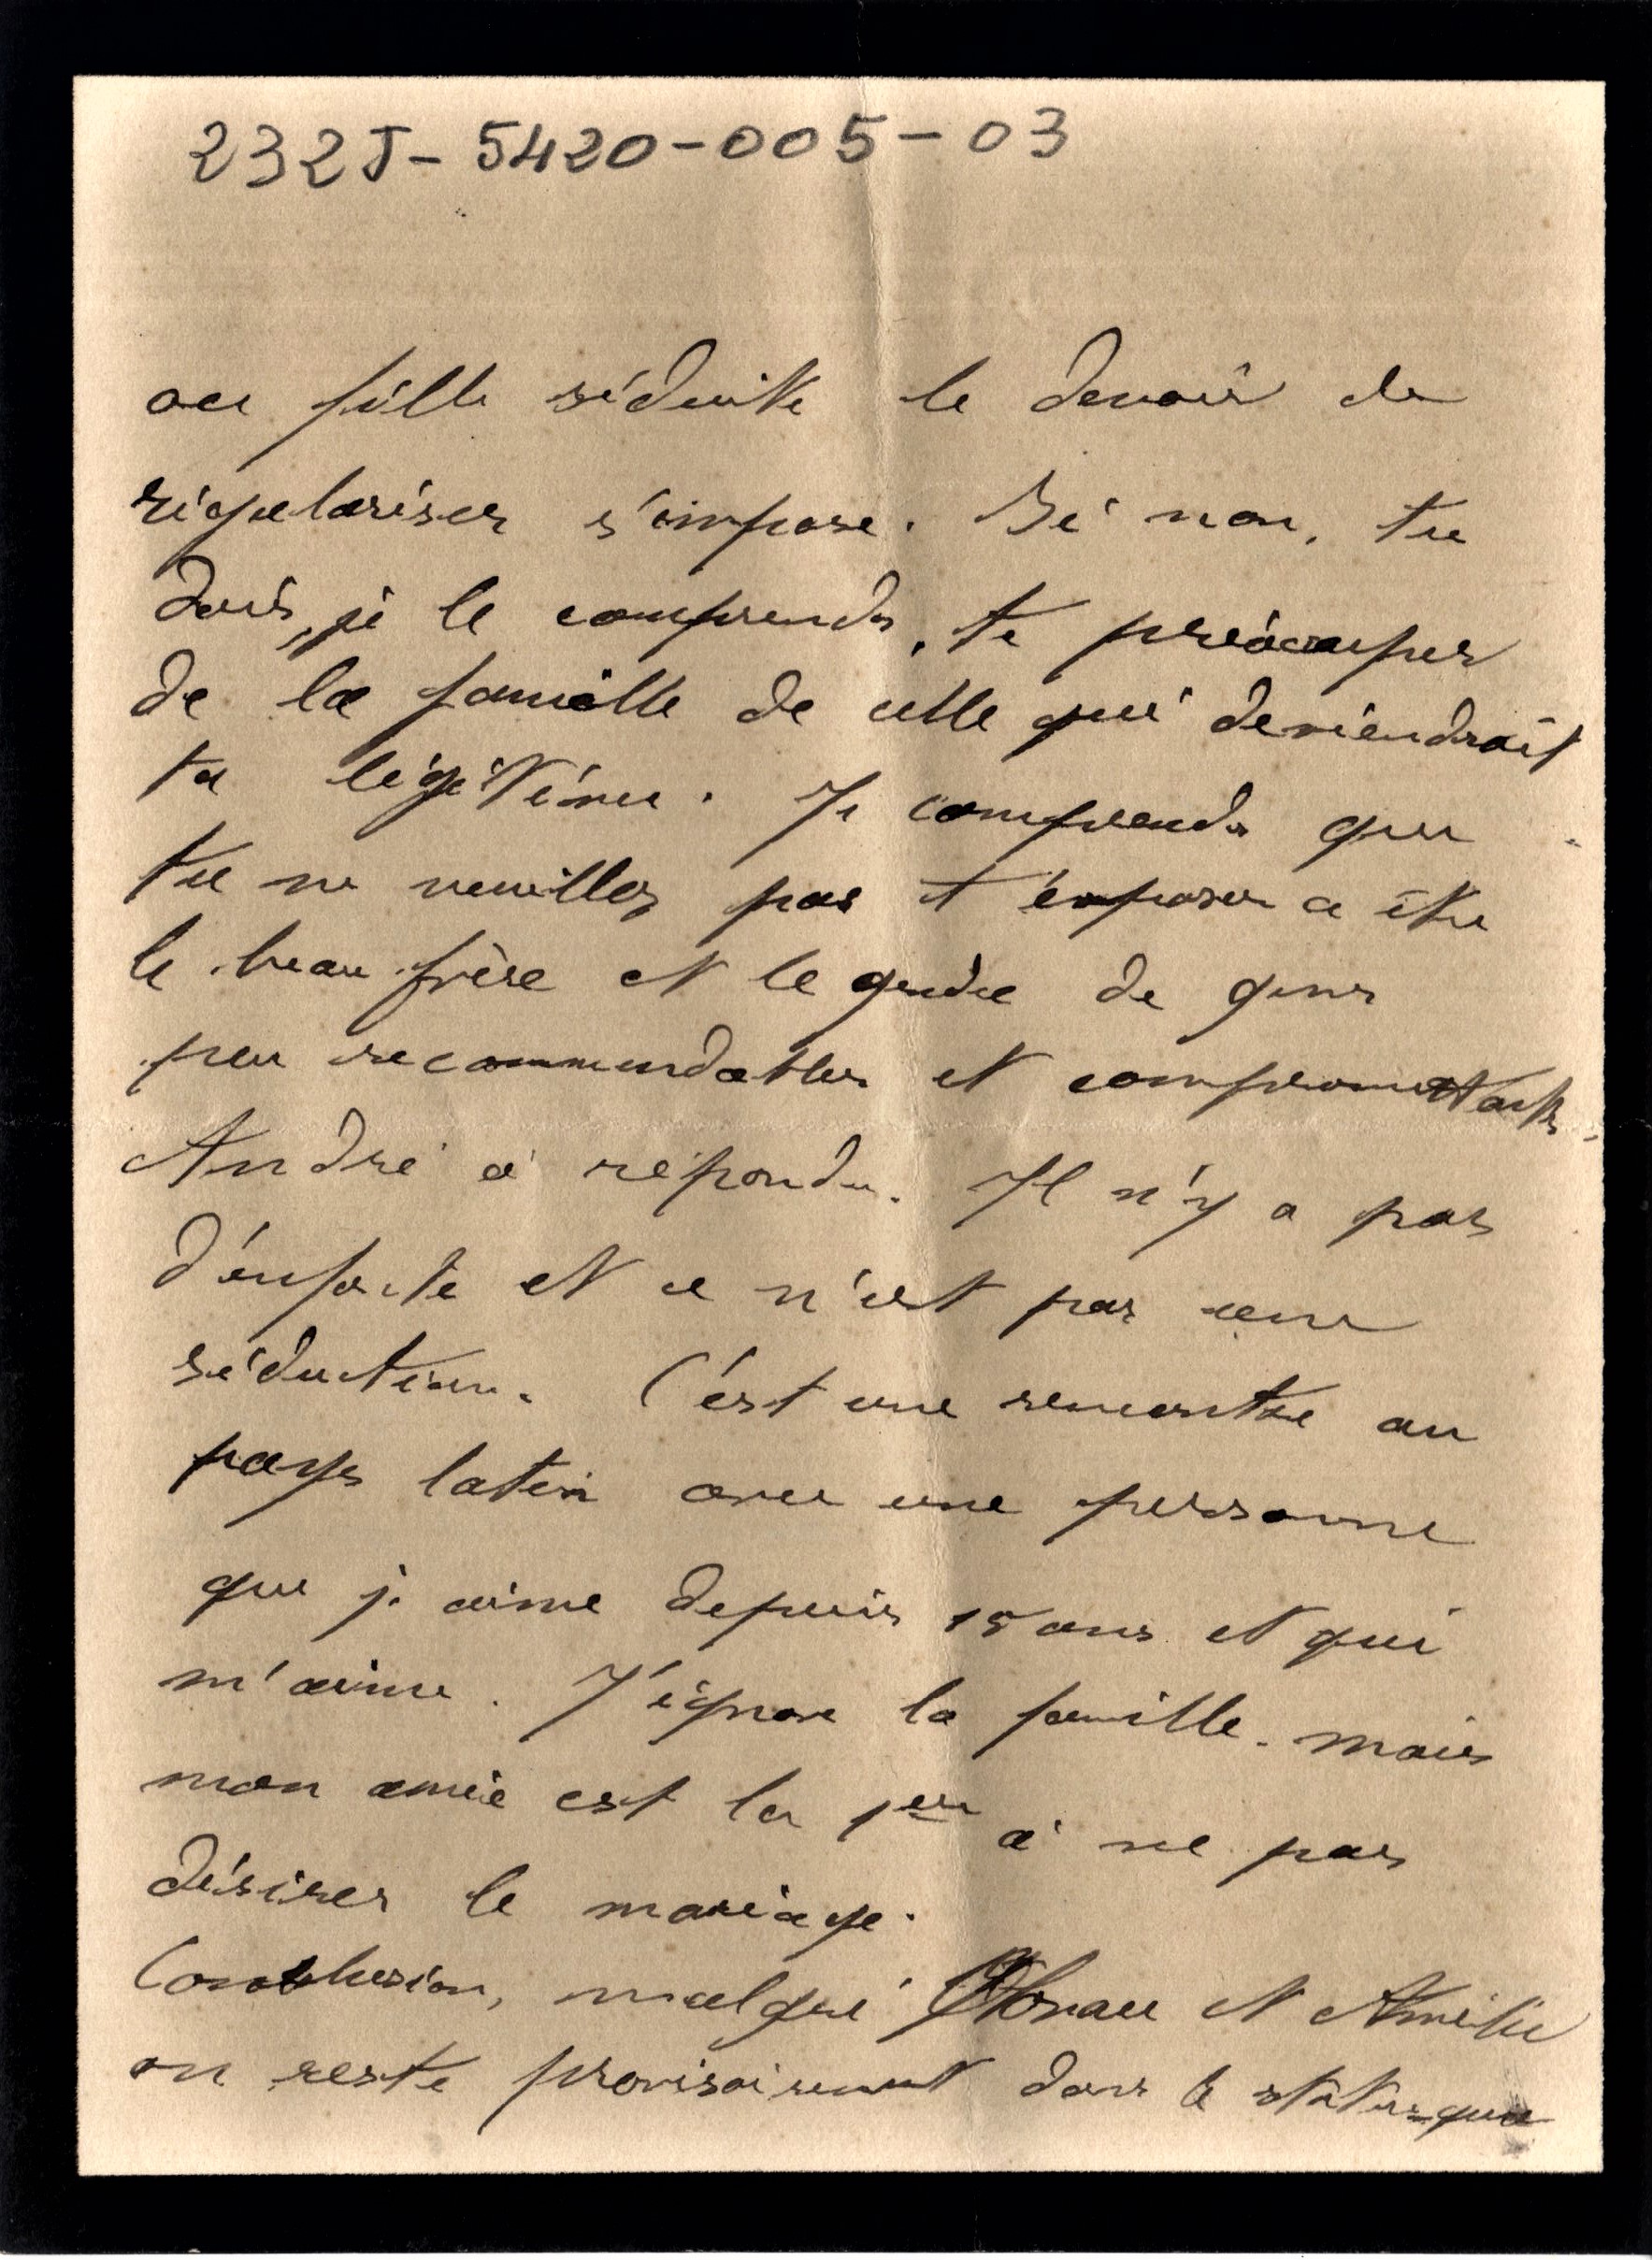 232J-5420-005-03
ou fille séduite le devoir de
régulariser s'impose. Si non, tu
dois, je le comprends, te préoccuper
de la famille de celle qui deviendrait
ta légitime. Je comprends que
tu ne veuilles pas t'exposer a être
le beau frère et le gendre de gens
peu recommendables et compromettants.
André a répondu. Il n'y a pas
d'enfants et ce n'est pas une
séduction. C'est une rencontre au
pays latin avec une personne
que j'aime depuis 15 ans et qui
m'aime. J'ignore la famille. mais
mon amie est la 1ere à ne pas
désirer le mariage.
Conclusion, malgré et Amélie
on reste provisoirement dans le status-quo